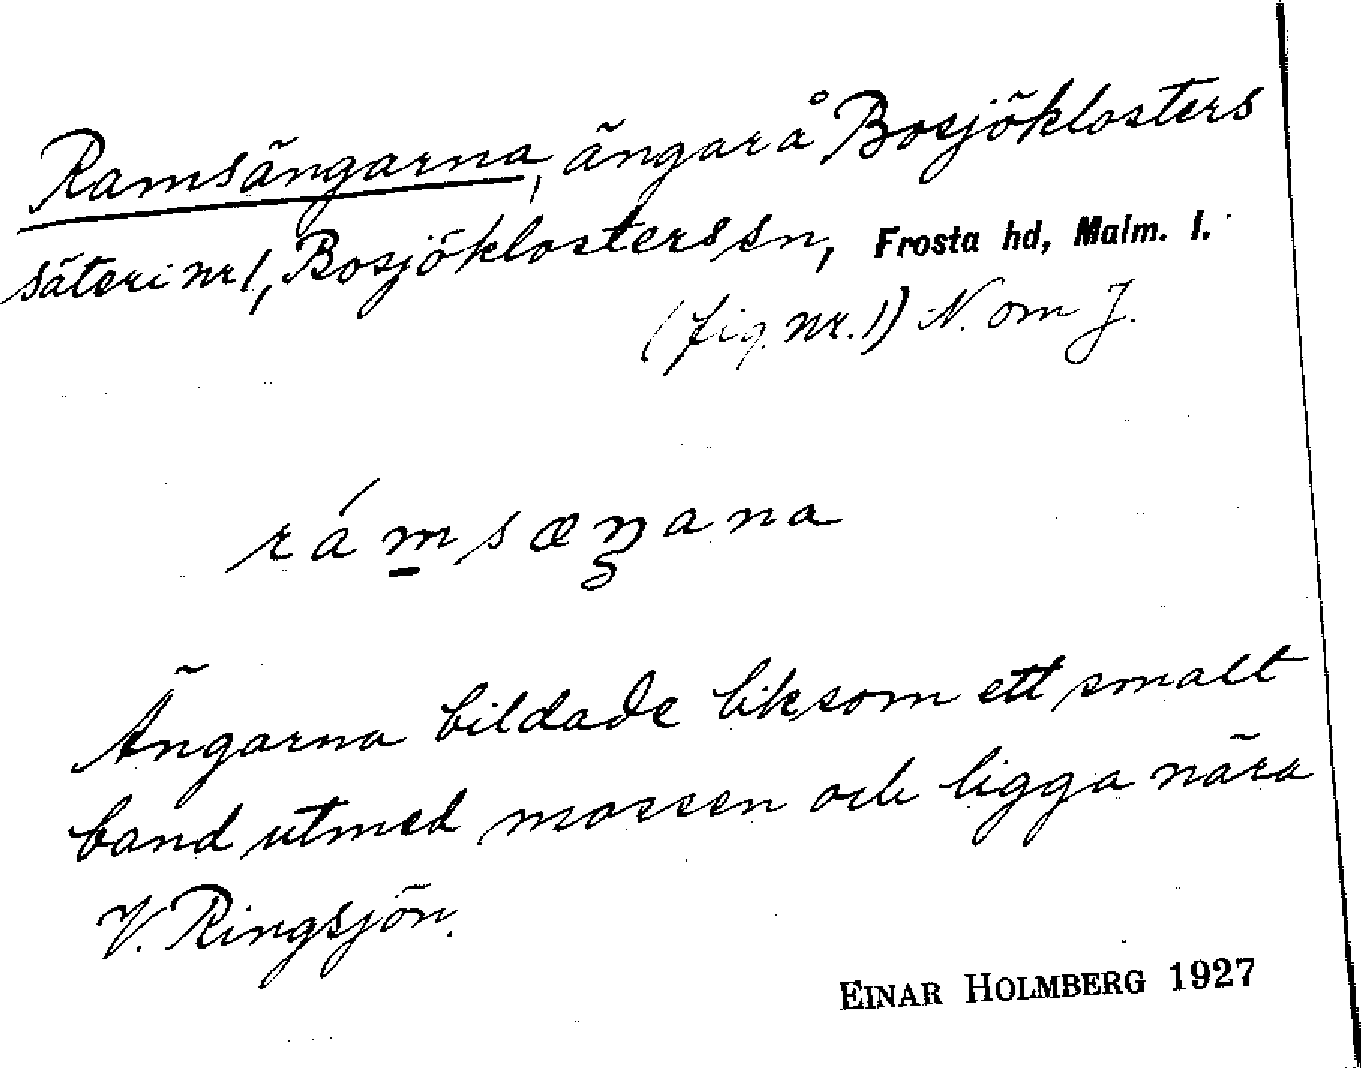 Ramsängarna, ängar å Bosjöklosters
säteri nr 1, Bosjöklosters sn, Frosta hd, Malm. l.
(fig. nr. 1) N. om J.
rámsæŋana
Ängarna bildade liksom ett smalt
band utmed mossen och ligga nära
V. Ringsjön.
EINAR HOLMBERG 1927